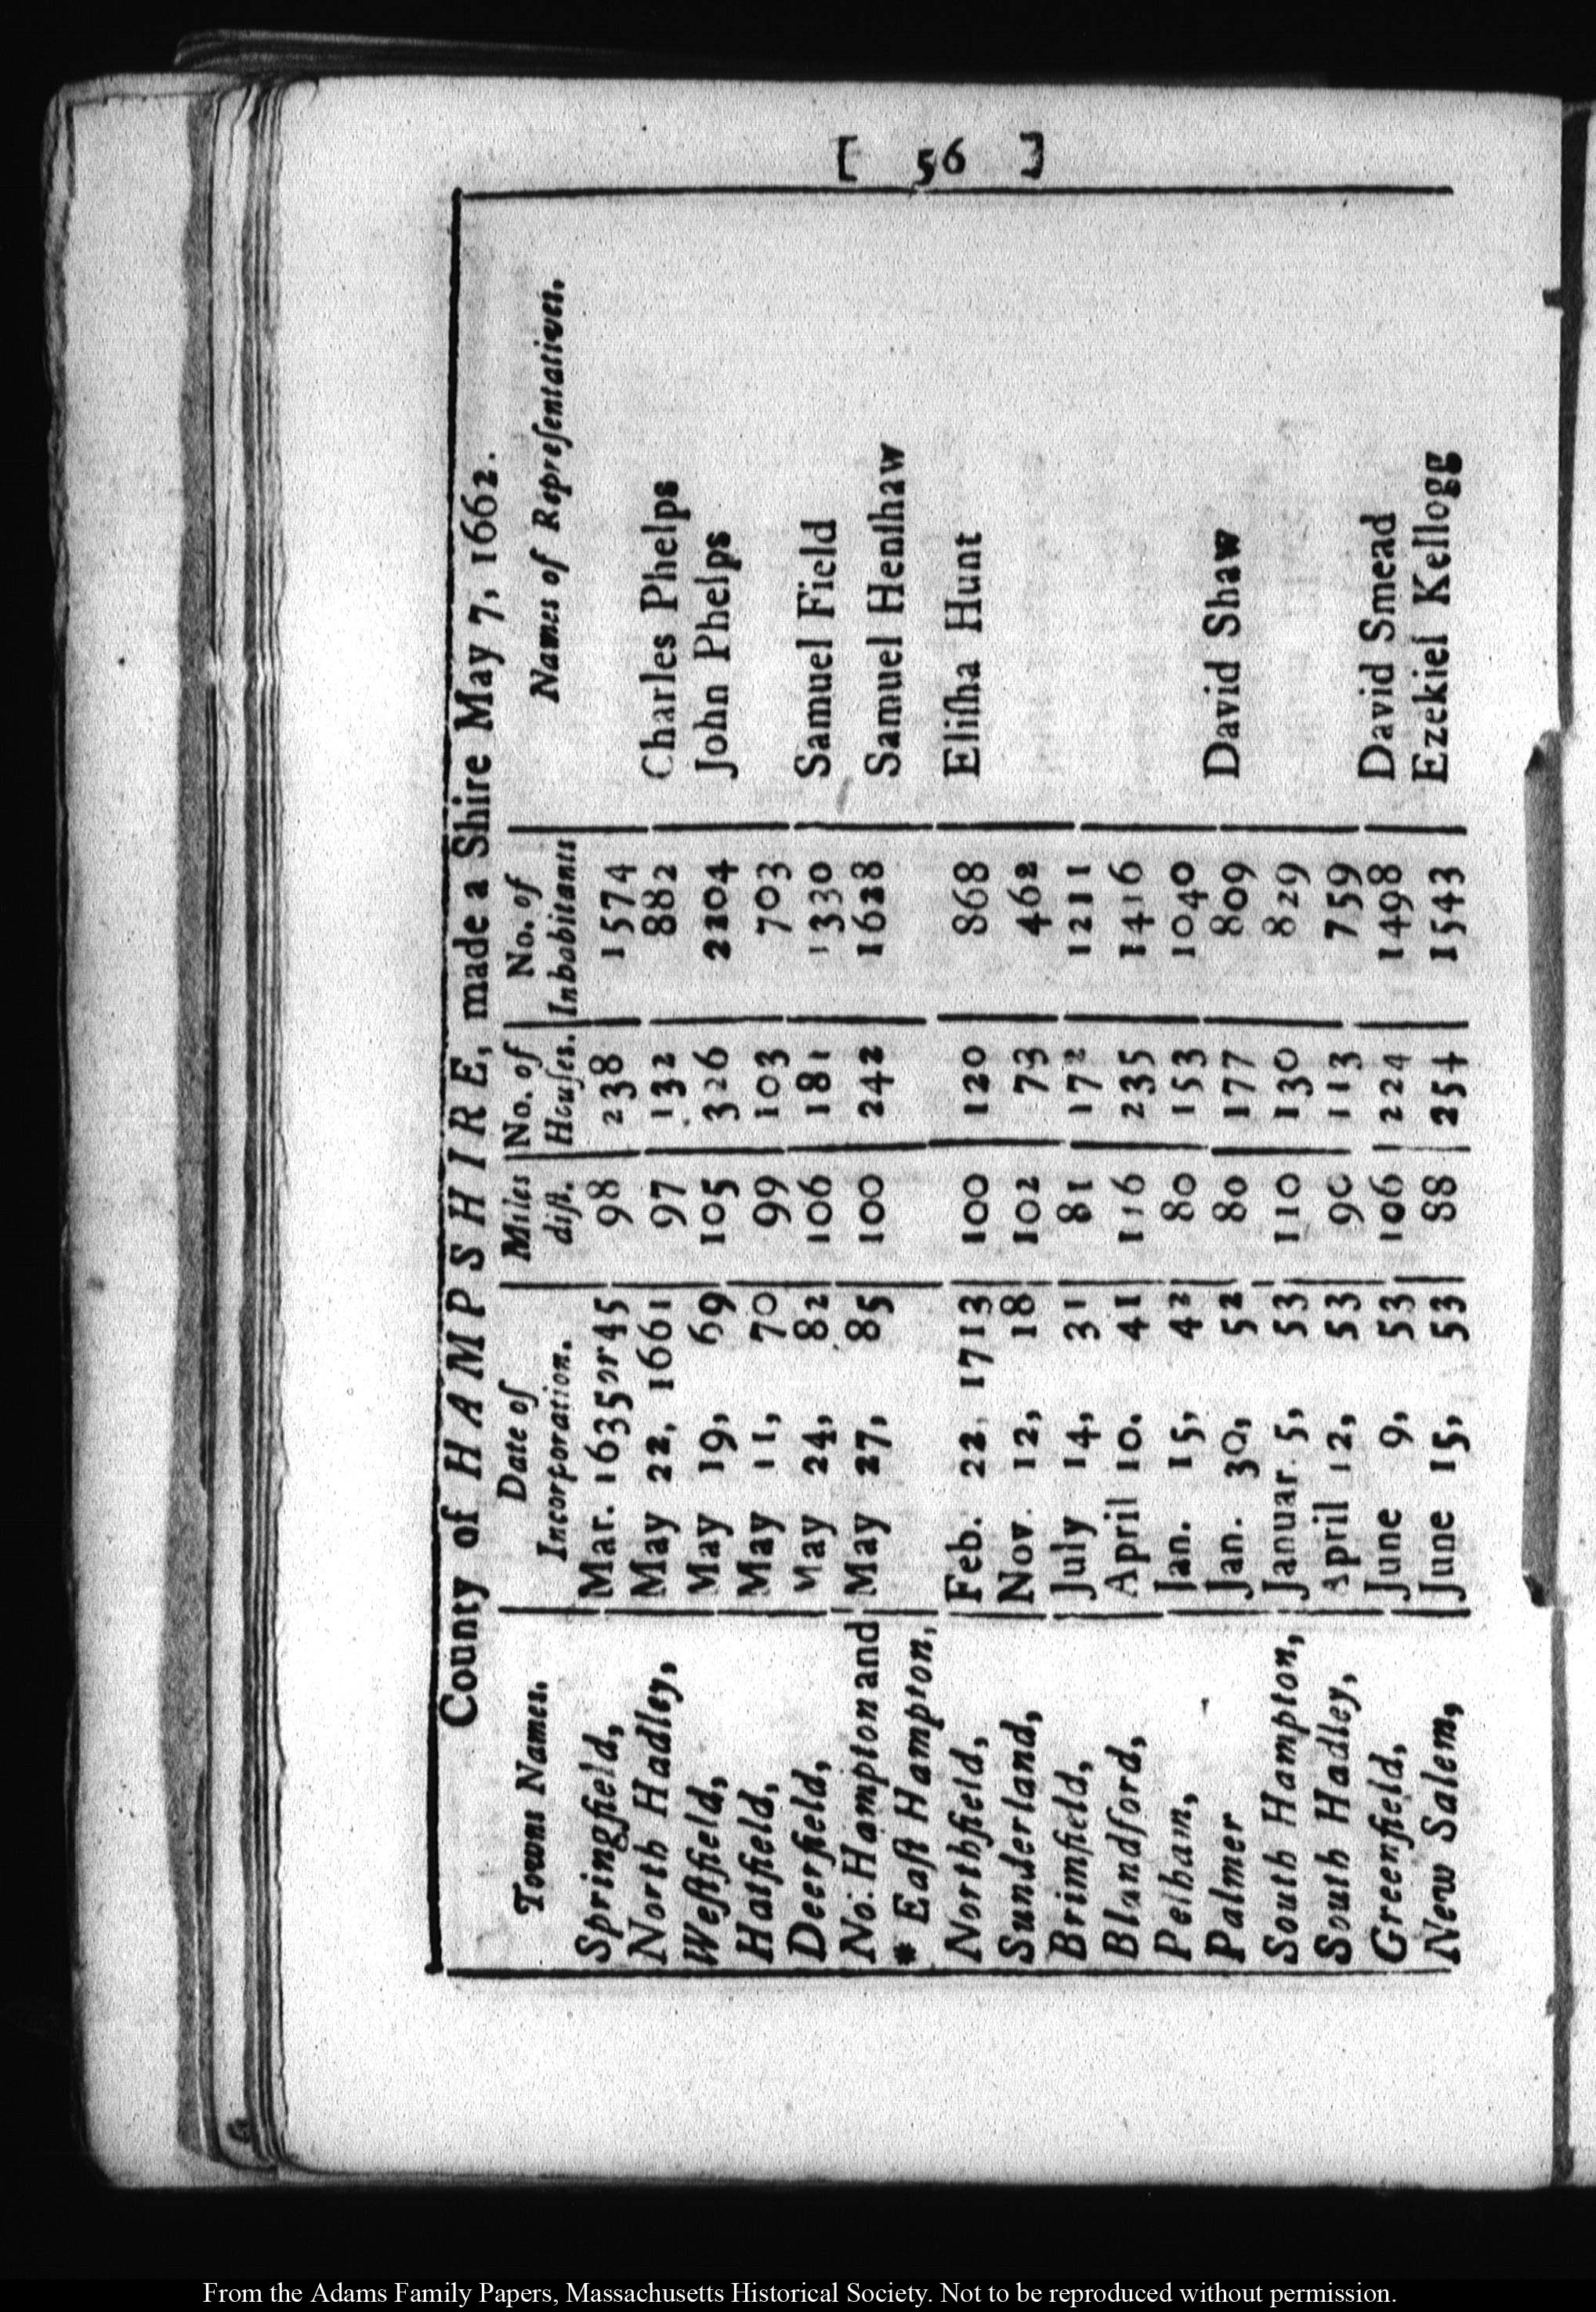 [ 56 ]
County of HAMPSHIRE, made a Shire May 7, 1662.
Towns Names. Date of Incorporation. Miles dist. No. of Houses. No. of Inhabitants Names of Representatives.
Springfield, Mar. 1635 or 45 98 238 1574
North Hadley, May 22, 1661 97 132 882 Charles Phelps
Westfield, May 19, 69 105 326 2204 John Phelps
Hatfield, May 11, 70 99 103 703
Deerfield, May 24, 82 106 181 1330 Samuel Field
No. Hampton and May 27, 85 100 242 1628 Samuel Henshaw
* East Hampton,
Northfield, Feb. 22, 1713 100 120 868 Elisha Hunt
Sunderland, Nov. 12, 18 102 73 462
Brimfield, July 14, 31 81 172 1211
Blandford, April 10. 41 116 235 1416
Pelham, Jan. 15, 42 80 153 1040
Palmer Jan. 30, 52 80 177 809 David Shaw
South Hampton, Januar. 5, 53 110 130 829
South Hadley, April 12, 53 90 113 759
Greenfield, June 9, 53 106 224 1498 David Smead
New Salem, June 15, 53 88 254 1543 Ezekiel Kellogg
From the Adams Family Papers, Massachusetts Historical Society. Not to be reproduced without permission.